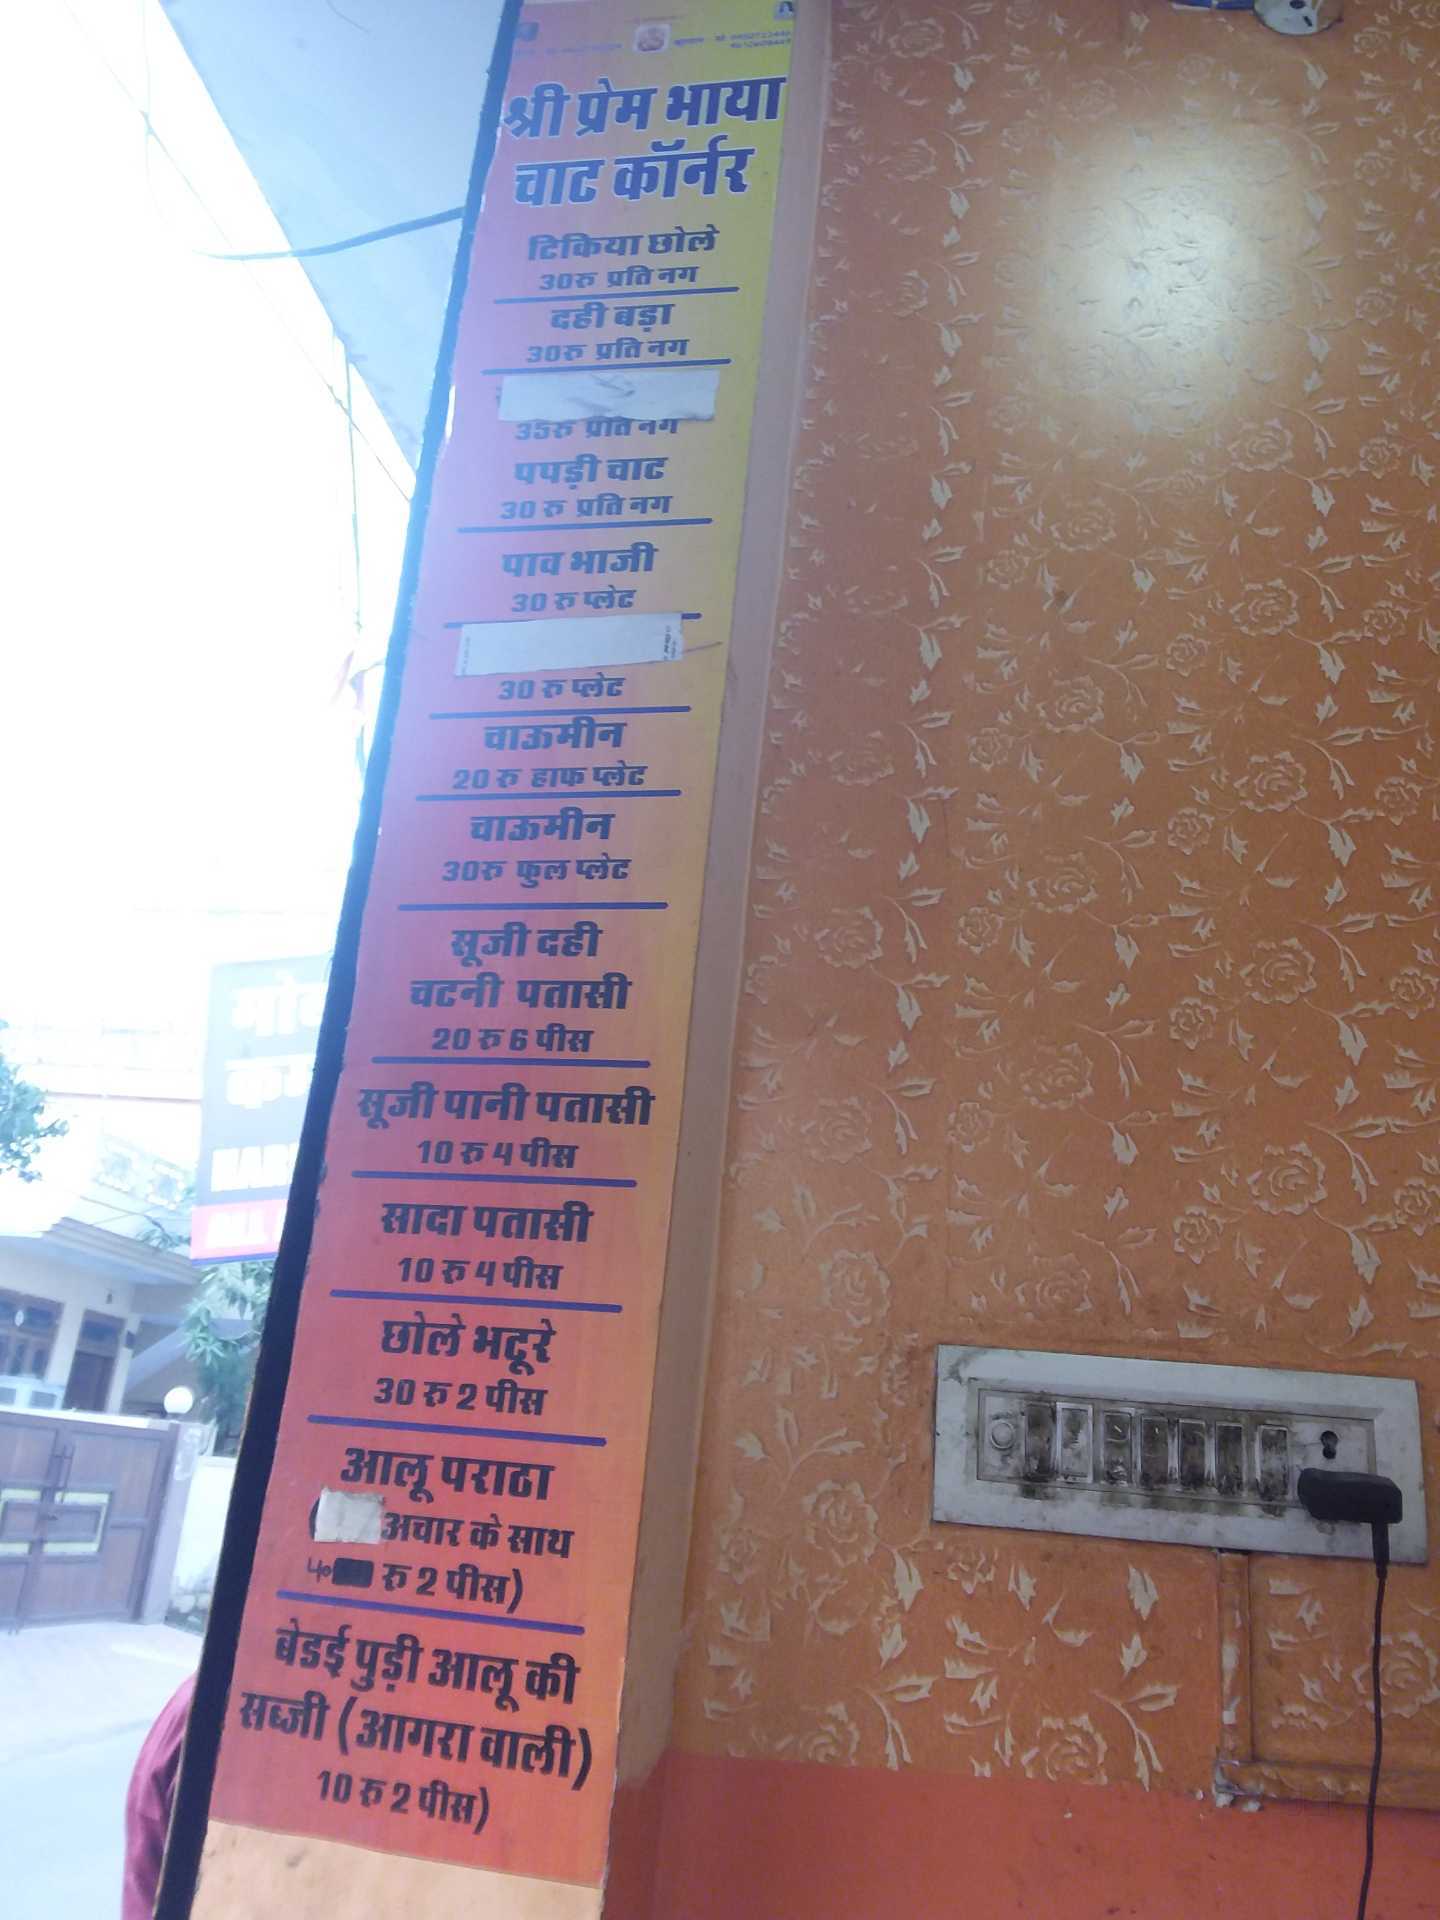 श्री प्रेम भाया
चाट कॉर्नर
टिकिया छोले
30रु प्रति नग
दही बड़ा
30रु प्रति नग
35रु प्रति नग
पपड़ी चाट
30 रु प्रति नग
पाव भाजी
30 रु प्लेट
30 रु प्लेट
चाऊमीन
20 रु हाफ प्लेट
चाऊमीन
30रु फुल प्लेट
सूजी दही
चटनी पतासी
20 रु 6 पीस
सूजी पानी पतासी
10 रु 4 पीस
सादा पतासी
10 रु 4 पीस
छोले भटूरे
30 रु 2 पीस
आलू पराठा
( अचार के साथ
40 रु 2 पीस)
बेडई पुड़ी आलू की
सब्जी (आगरा वाली)
10 रु 2 पीस)